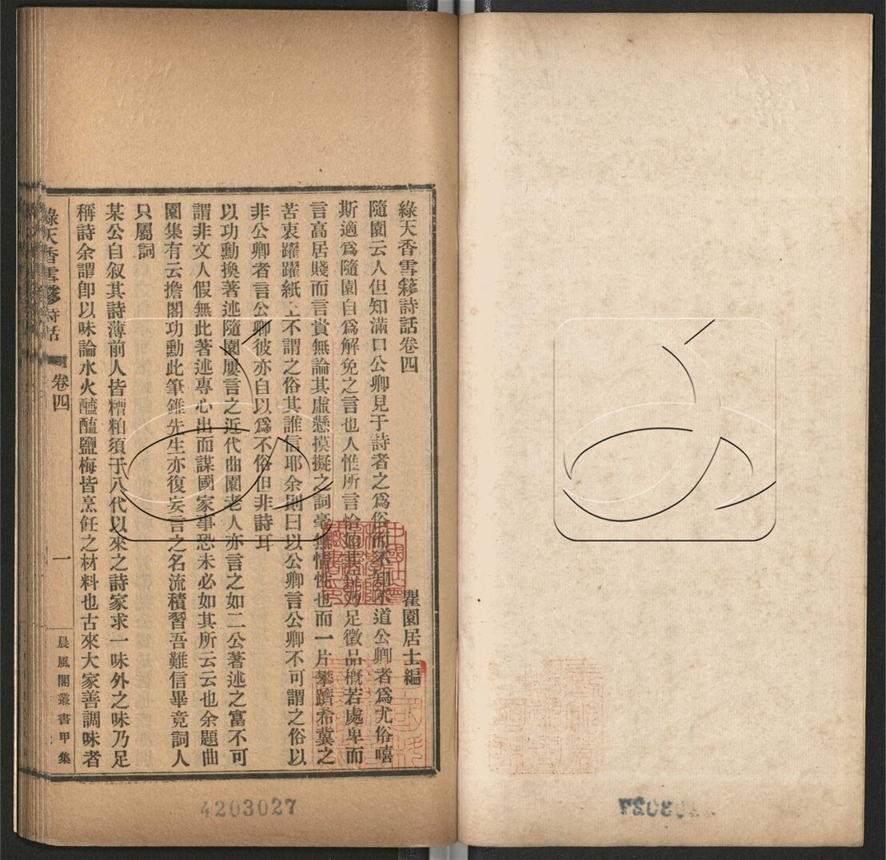 綠天香雪簃詩話卷四
瞿園居士編
隨園云人但知滿口公卿見于詩者之爲俗而不知不道公卿者爲尤俗嘻
斯適爲隨園自爲解免之言也人惟所言恰如其分乃足徵品概若處卑而
言高居賤而言貴無論其虛懸摸擬之詞毫無情性也而一片攀躋希冀之
苦衷躍躍紙上不謂之俗其誰信耶余則曰以公卿言公卿不可謂之俗以
非公卿者言公卿彼亦自以爲不俗但非詩耳
以功勳換著述隨園屢言之近代曲園老人亦言之如二公著述之富不可
謂非文人假無此著述專心出而謀國家事恐未必如其所云云也余題曲
園集有云擔閣功勳此筆錐先生亦復妄言之名流積習吾難信畢竟詞人
只屬詞
某公自叙其詩薄前人皆糟粕須于八代以來之詩家求一味外之味乃足
稱詩余謂卽以味論水火醯醢鹽梅皆烹飪之材料也古來大家善調味者
綠天香雪簃詩話
卷四
一
晨風閣叢書甲集
4203027